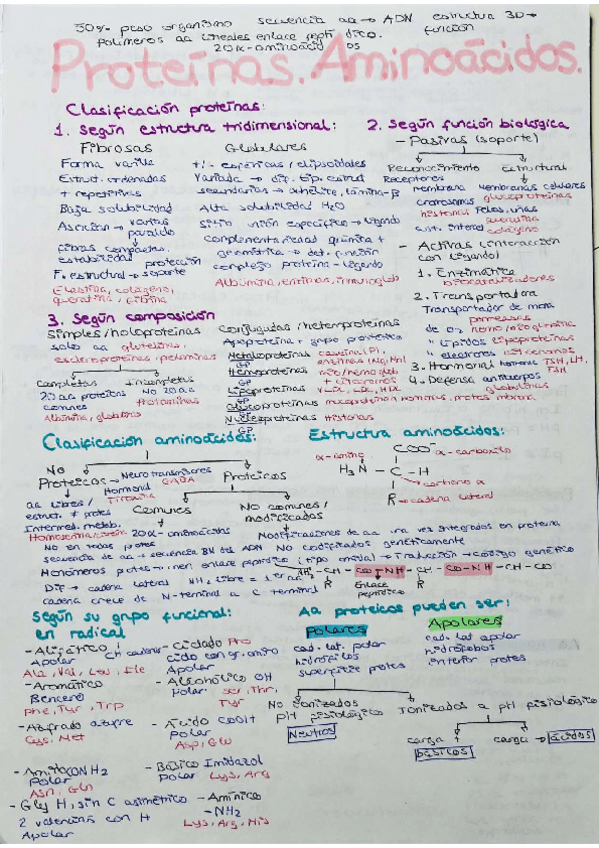 50% peso organismo secuencia aa → ADN estructura 3D →
polímeros aa lineales enlace peptídico. función
20 α-aminoácidos
Proteínas. Aminoácidos.
Clasificación proteínas:
1. Según estructura tridimensional:
Fibrosas
Forma varilla
Estruct. ordenadas
+ repetitivas
Baja solubilidad
Asocian → varias
paralelo
fibras compactas.
estabilidad protección
F. estructural → soporte
Elastina, colágeno,
queratina, fibrina
Globulares
+/- esféricas / elipsoidales
Variada → dif. tip. estruct
secundarias → αhélice, lámina-β
Alta solubilidad H2O
Sitio unión específico → ligando
complementariedad química +
geométrica → det. función
complejo proteína-ligando
Albúmina, enzimas, inmunoglob
2. Según función biológica
- Pasivas (soporte)
Reconocimiento
Receptores
membrana
cromosomas
histonas
Estructural
Membranas celulares
glucoproteínas
Pelos, uñas
queratina
colágeno
- Activas (interacción
con ligando)
1. Enzimática
biocatalizadores
2. Transportadora
Transportador de memb
permeasas
de O2 hemo/mioglobina
" lípidos lipoproteínas
" electrones citocromos
3. Hormonal hormonas TSH, LH,
FSH
4. Defensa anticuerpos
globulinas
3. Según composición
Simples/holoproteínas
solo aa glutelinas,
escleroproteínas, prolaminas
Completas
20 aa proteicos
comunes
Albúmina, globulina
Incompletas
No 20 aa
Protaminas
Conjugadas/heteroproteínas
Apoproteína + grupo prostético
Metaloproteínas
GP
Hemoproteínas
GP
+ citocromos
Lipoproteínas VLDL, LDL, HDL
GP
Glucoproteínas
GP
Nucleoproteínas Histonas
GP
Clasificación aminoácidos:
No
Proteicos
Neurotransmisores
GABA
Hormonal
Tiroxina
aa libres /
estruct. ≠ protes
Intermed. metab.
Proteicos
Comunes
20 α-aminoácidos
No en todas protes
secuencia de aa → secuencia BN del ADN
Monómeros protes → unen enlace peptídico (tipo amida) → Traducción → código genético
Dif → cadena lateral
cadena crece de N-terminal a C terminal
No comunes/
modificados
Modificaciones de aa una vez integrados en proteína
No codificados genéticamente
Estructura aminoácidos:
COO⁻ α-carboxilo
α-amino
H3N - C - H
carbono α
R → cadena lateral
- CH - CO-NH - CH - CO-NH - CH - CO
R R R
Enlace
peptídico
Según su grupo funcional:
en radical
- Alifático
Apolar
Ala, Val, Leu, Ile
- Aromático
Benceno
Phe, Tyr, Trp
- Azufrado azufre
Cys, Met
- Amida CONH2
Polar
Asn, Gln
- Gly H, sin C asimétrico
2 valencias con H
Apolar
- Ciclado Pro
ciclo con gr. amino
Apolar
- Alcohólico OH
Polar Ser, Thr,
Tyr
- Ácido COOH
Polar
Asp, Glu
- Básico Imidazol
Polar Lys, Arg
- Amínico
-NH2
Lys, Arg, His
Aa proteicos pueden ser:
Polares
cad. lat. polar
hidrófilos
superficie protes
No ionizados
pH fisiológico
Neutros
Ionizados a pH fisiológico
carga +
básicos
carga - → ácidos
Apolares
cad. lat apolar
hidrófobos
interior protes